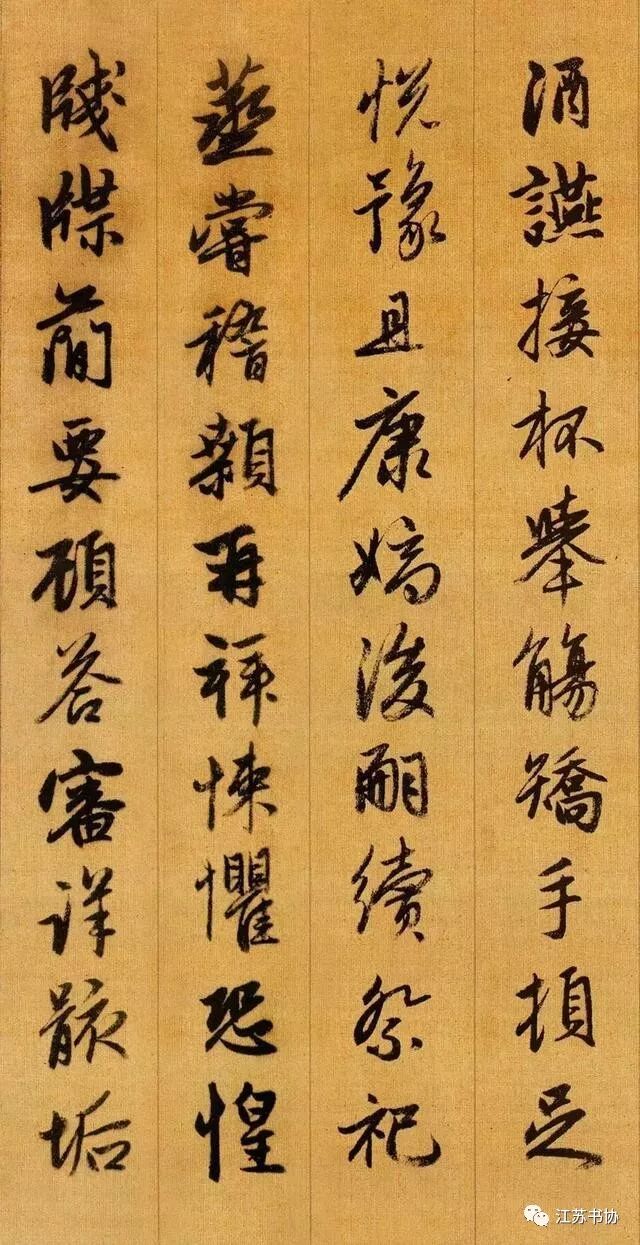 酒讌接杯舉觴矯手頓足
悅豫且康嫡後嗣續祭祀
蒸嘗稽顙再拜悚懼恐惶
牋牒簡要顧答審詳骸垢
江苏书协